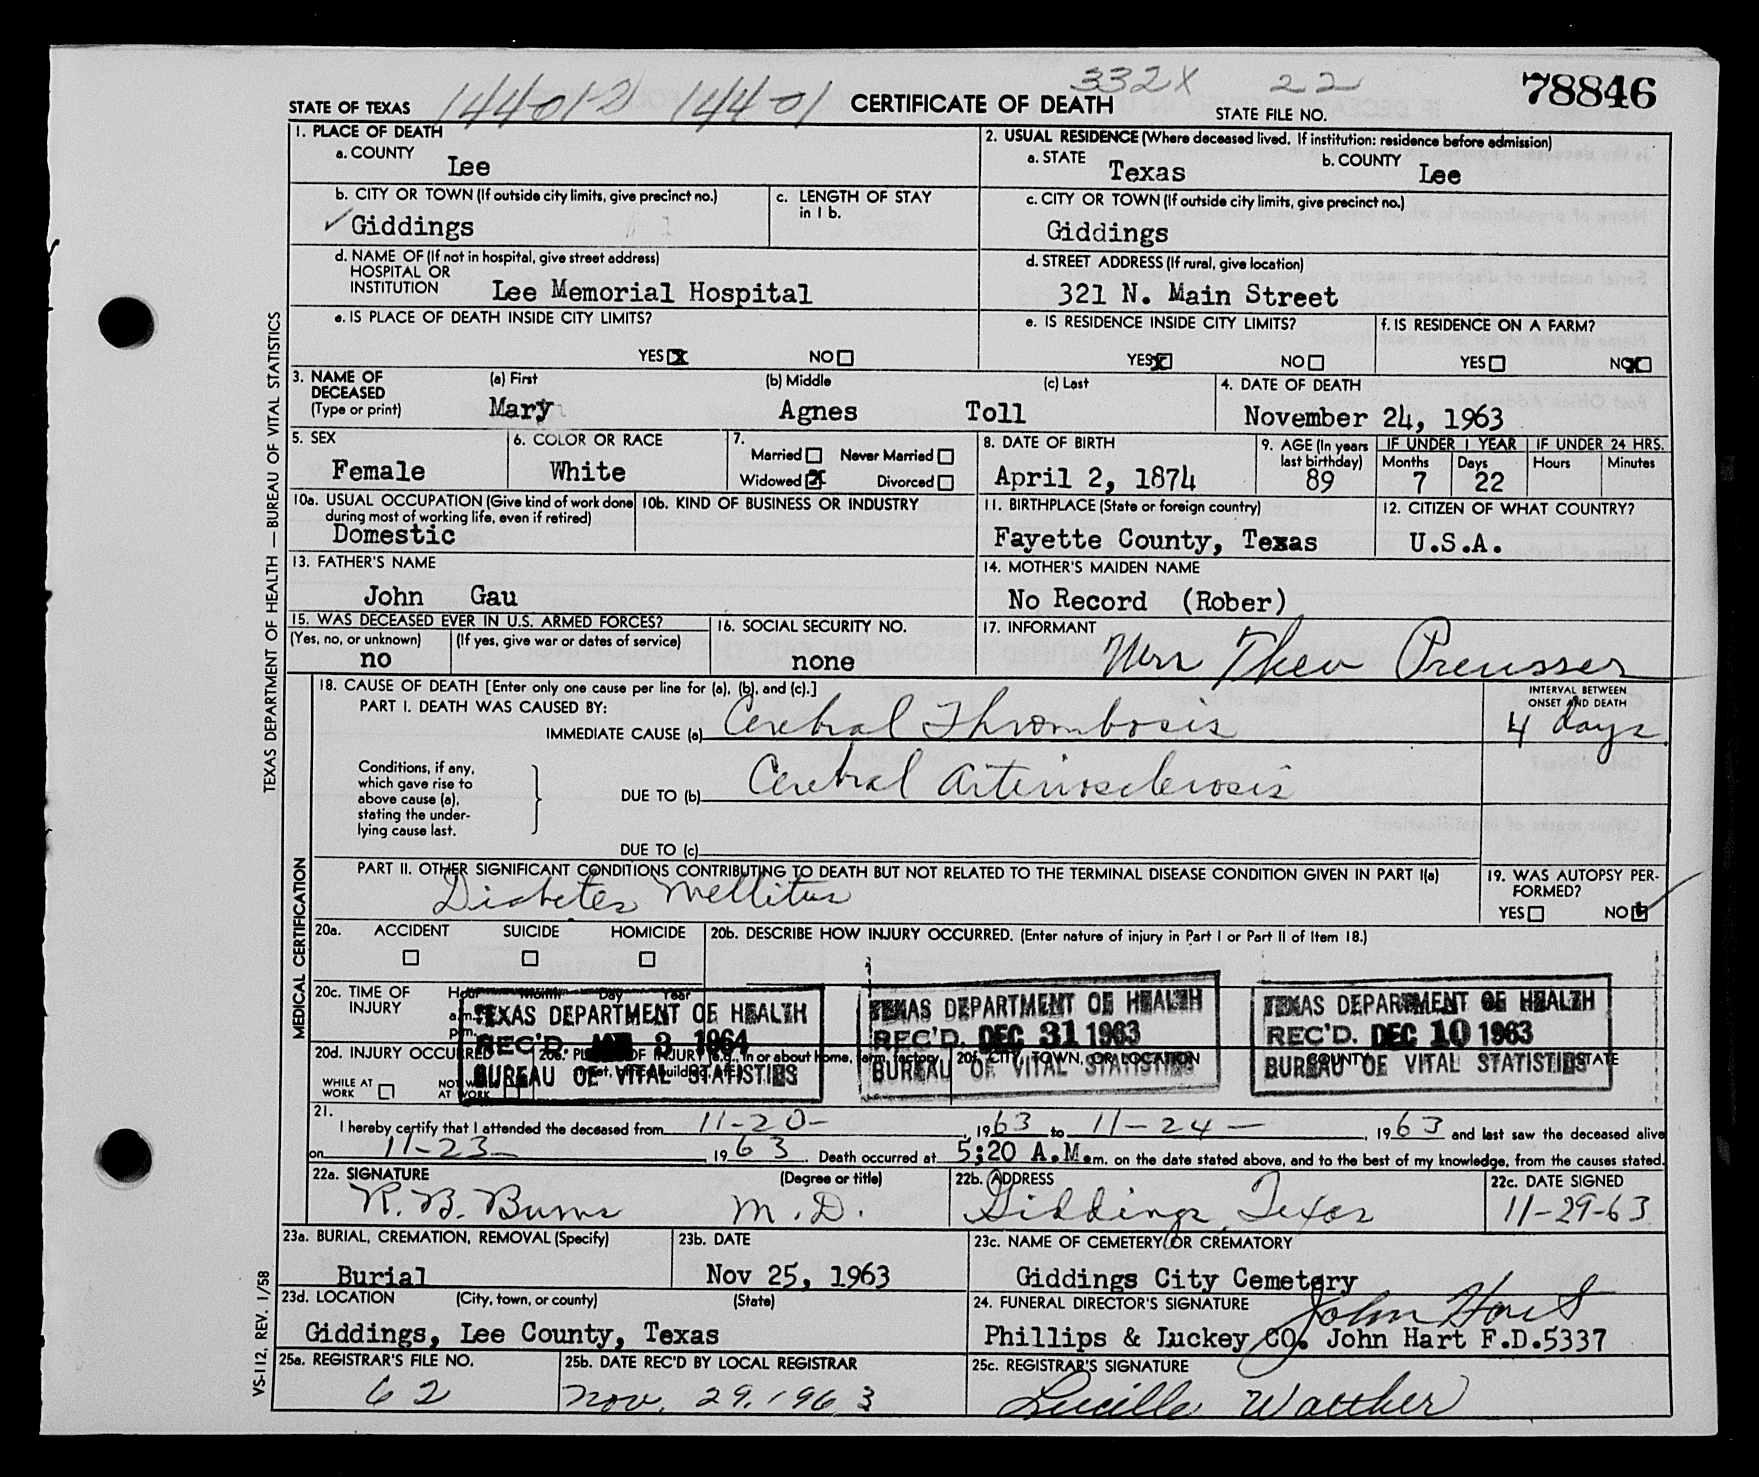 332X 22 78846
STATE OF TEXAS 14401-2 14401 CERTIFICATE OF DEATH STATE FILE NO.
1. PLACE OF DEATH
a. COUNTY Lee
2. USUAL RESIDENCE (Where deceased lived. If institution: residence before admission)
a. STATE Texas b. COUNTY Lee
b. CITY OR TOWN (If outside city limits, give precinct no.) ✓ Giddings
c. LENGTH OF STAY in 1 b.
c. CITY OR TOWN (If outside city limits, give precinct no.) Giddings
d. NAME OF (If not in hospital, give street address)
HOSPITAL OR
INSTITUTION Lee Memorial Hospital
d. STREET ADDRESS (If rural, give location)
321 N. Main Street
e. IS PLACE OF DEATH INSIDE CITY LIMITS?
YES☒ NO☐
e. IS RESIDENCE INSIDE CITY LIMITS?
YES☒ NO☐
f. IS RESIDENCE ON A FARM?
YES☐ NO☒
3. NAME OF DECEASED (Type or print)
(a) First Mary (b) Middle Agnes (c) Last Toll
4. DATE OF DEATH
November 24, 1963
5. SEX Female
6. COLOR OR RACE White
7. Married☐ Never Married☐
Widowed☒ Divorced☐
8. DATE OF BIRTH April 2, 1874
9. AGE (In years last birthday) 89
IF UNDER 1 YEAR Months 7 Days 22
IF UNDER 24 HRS. Hours Minutes
10a. USUAL OCCUPATION (Give kind of work done during most of working life, even if retired) Domestic
10b. KIND OF BUSINESS OR INDUSTRY
11. BIRTHPLACE (State or foreign country) Fayette County, Texas
12. CITIZEN OF WHAT COUNTRY? U.S.A.
13. FATHER'S NAME
John Gau
14. MOTHER'S MAIDEN NAME
No Record (Rober)
15. WAS DECEASED EVER IN U.S. ARMED FORCES?
(Yes, no, or unknown) no (If yes, give war or dates of service)
16. SOCIAL SECURITY NO. none
17. INFORMANT Mrs Theo Preusser
18. CAUSE OF DEATH [Enter only one cause per line for (a), (b), and (c).]
PART I. DEATH WAS CAUSED BY:
IMMEDIATE CAUSE (a) Cerebral Thrombosis
INTERVAL BETWEEN ONSET AND DEATH
4 days
Conditions, if any, which gave rise to above cause (a), stating the underlying cause last.
DUE TO (b) Cerebral Arteriosclerosis
DUE TO (c)
PART II. OTHER SIGNIFICANT CONDITIONS CONTRIBUTING TO DEATH BUT NOT RELATED TO THE TERMINAL DISEASE CONDITION GIVEN IN PART I(a)
Diabetes Mellitus
19. WAS AUTOPSY PERFORMED?
YES☐ NO☑
20a. ACCIDENT ☐ SUICIDE ☐ HOMICIDE ☐
20b. DESCRIBE HOW INJURY OCCURRED. (Enter nature of injury in Part I or Part II of Item 18.)
20c. TIME OF INJURY Hour Month Day Year
a.m.
p.m.
TEXAS DEPARTMENT OF HEALTH
REC'D. JAN 3 1964
BUREAU OF VITAL STATISTICS
TEXAS DEPARTMENT OF HEALTH
REC'D. DEC 31 1963
BUREAU OF VITAL STATISTICS
TEXAS DEPARTMENT OF HEALTH
REC'D. DEC 10 1963
BUREAU OF VITAL STATISTICS
20d. INJURY OCCURRED
WHILE AT WORK ☐ NOT WHILE AT WORK ☐
20e. PLACE OF INJURY (e.g., in or about home, farm, factory, street, office building, etc.)
20f. CITY, TOWN, OR LOCATION COUNTY STATE
21. I hereby certify that I attended the deceased from 11-20-, 1963 to 11-24-, 1963 and last saw the deceased alive
on 11-23-, 1963. Death occurred at 5:20 A.M.m. on the date stated above, and to the best of my knowledge, from the causes stated.
22a. SIGNATURE (Degree or title)
R. B. Burns M.D.
22b. ADDRESS
Giddings, Texas
22c. DATE SIGNED
11-29-63
23a. BURIAL, CREMATION, REMOVAL (Specify)
Burial
23b. DATE
Nov 25, 1963
23c. NAME OF CEMETERY OR CREMATORY
Giddings City Cemetery
23d. LOCATION (City, town, or county) (State)
Giddings, Lee County, Texas
24. FUNERAL DIRECTOR'S SIGNATURE John Hart
Phillips & Luckey CO. John Hart F.D.5337
25a. REGISTRAR'S FILE NO.
62
25b. DATE REC'D BY LOCAL REGISTRAR
Nov. 29, 1963
25c. REGISTRAR'S SIGNATURE
Lucille Walther
TEXAS DEPARTMENT OF HEALTH — BUREAU OF VITAL STATISTICS
MEDICAL CERTIFICATION
VS-112, REV. 1/58